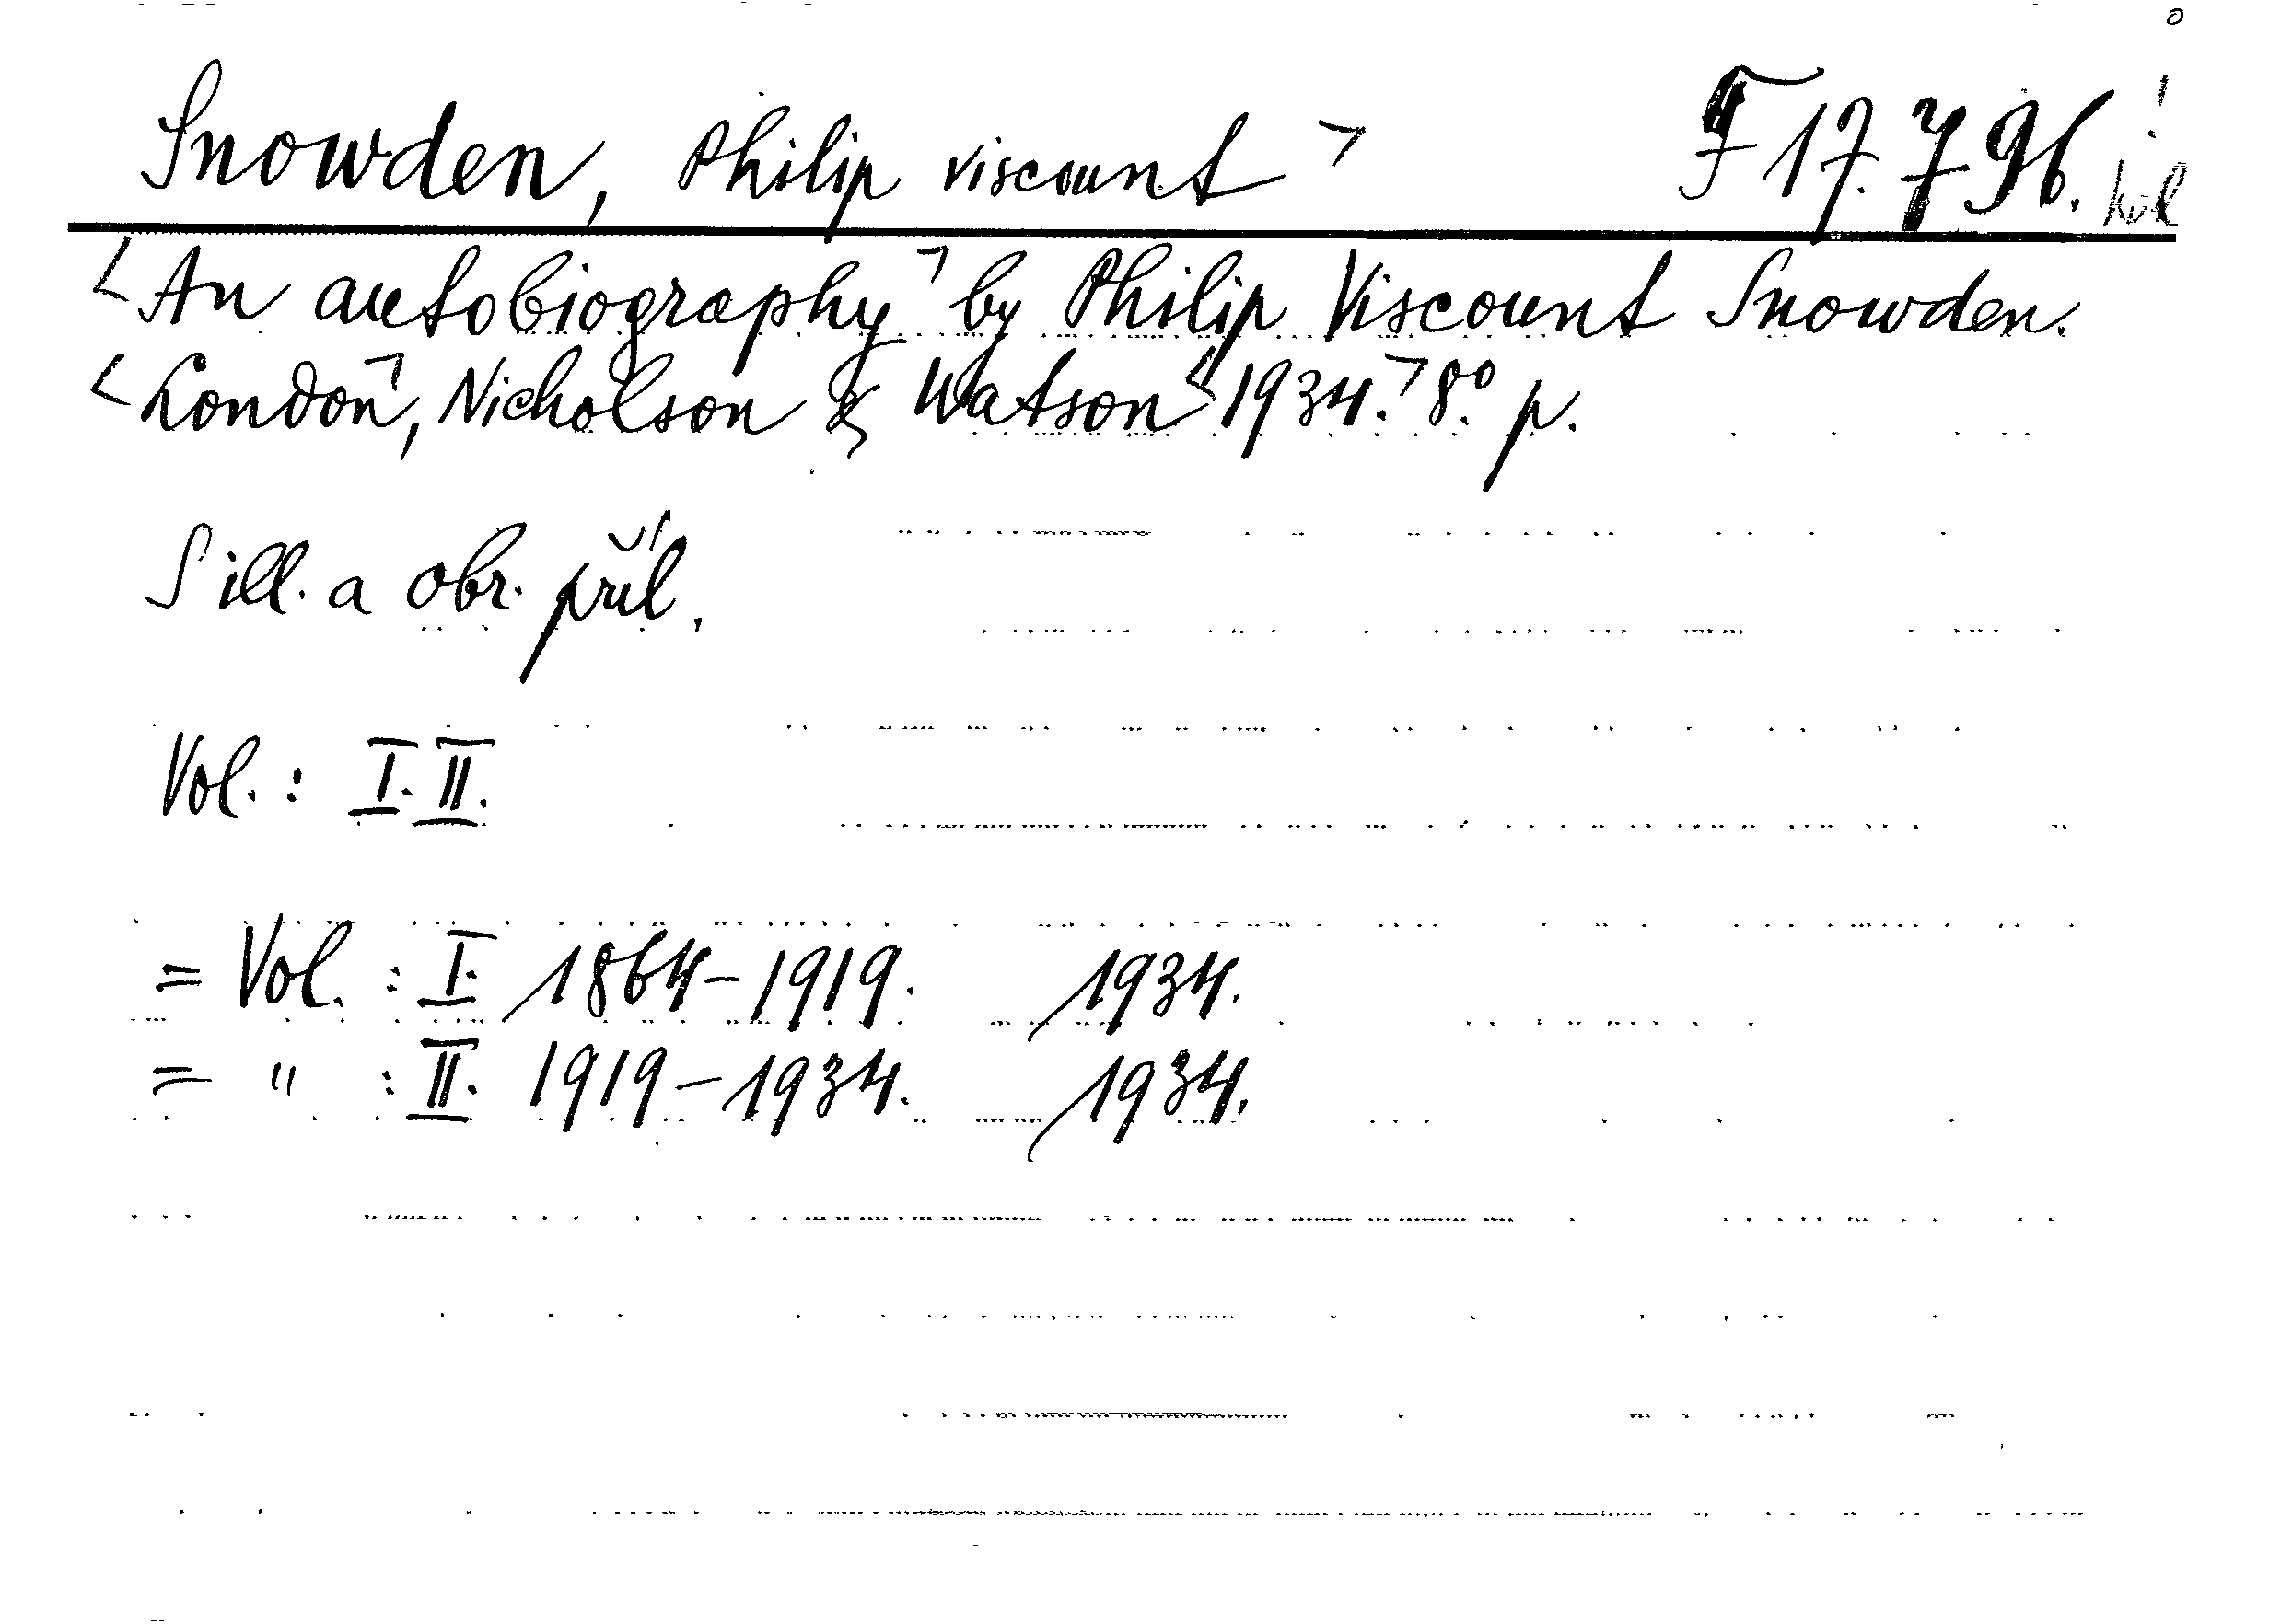 Snowden, Philip viscount ㄱ F 17.796.
<An autobiography ㄱ by Philip Viscount Snowden.
<London ㄱ, Nicholson & Watson <1934. ㄱ 8.° p.
S ill. a obr. příl.
Vol.: I. II.
= Vol. : I. 1864-1919. 1934.
= " : II. 1919-1934. 1934.